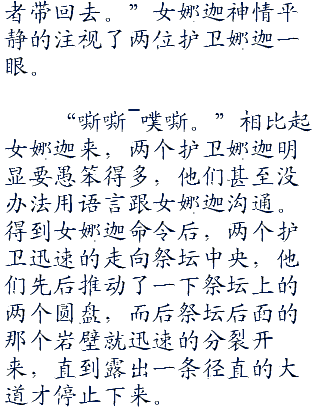 者带回去。”女娜迦神情平
静的注视了两位护卫娜迦一
眼。
“嘶嘶~噗嘶。”相比起
女娜迦来，两个护卫娜迦明
显要愚笨得多，他们甚至没
办法用语言跟女娜迦沟通。
得到女娜迦命令后，两个护
卫迅速的走向祭坛中央，他
们先后推动了一下祭坛上的
两个圆盘，而后祭坛后面的
那个岩壁就迅速的分裂开
来，直到露出一条径直的大
道才停止下来。